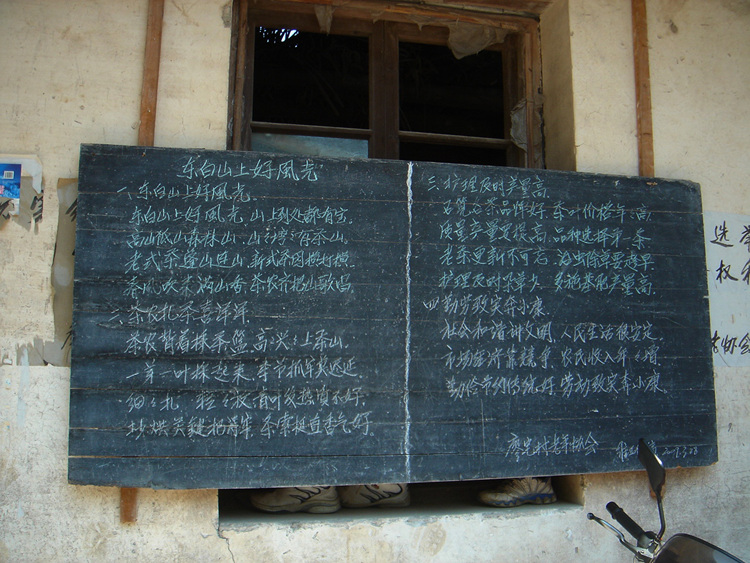 东白山上好風光
一、东白山上好風光。
东白山上好風光，山上到处都有宝。
高山低山森林山，山山湾湾有茶山。
老式茶蓬山连山，新式茶园横打横
春風吹来满山香，茶农齐把山歌唱
二、茶农扎茶喜洋洋
茶农背着採茶篮，高兴兴上茶山。
一芽一叶採起来，季市抓早莫迟延
细扎
炒烘关键把得牢，茶索挺直香气好
三、护理及时产量高，
名茶品牌好，茶叶价格年年高
质量产量要提高，品种选择第一条
老茶更新不可忘，治虫除草要趁早
护理及时不单大，多施基肥产量高
四、勤劳致实奔小康
社会和谐讲文明，人民生活很安定
市场经济靠竞争，农民收入年年增
勤俭节约传统好，劳动致实奔小康。
廖宅村老年协会
选举
权利